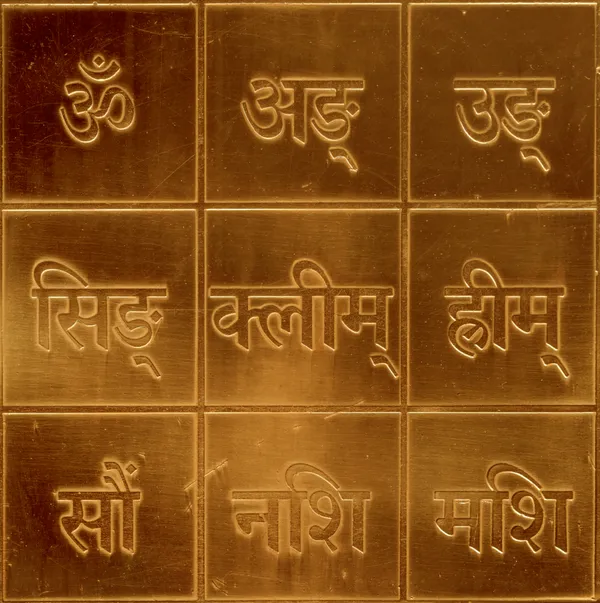 ॐ अङ् उङ्
सिङ् क्लीम् ह्रीम्
सौं नशि मशि